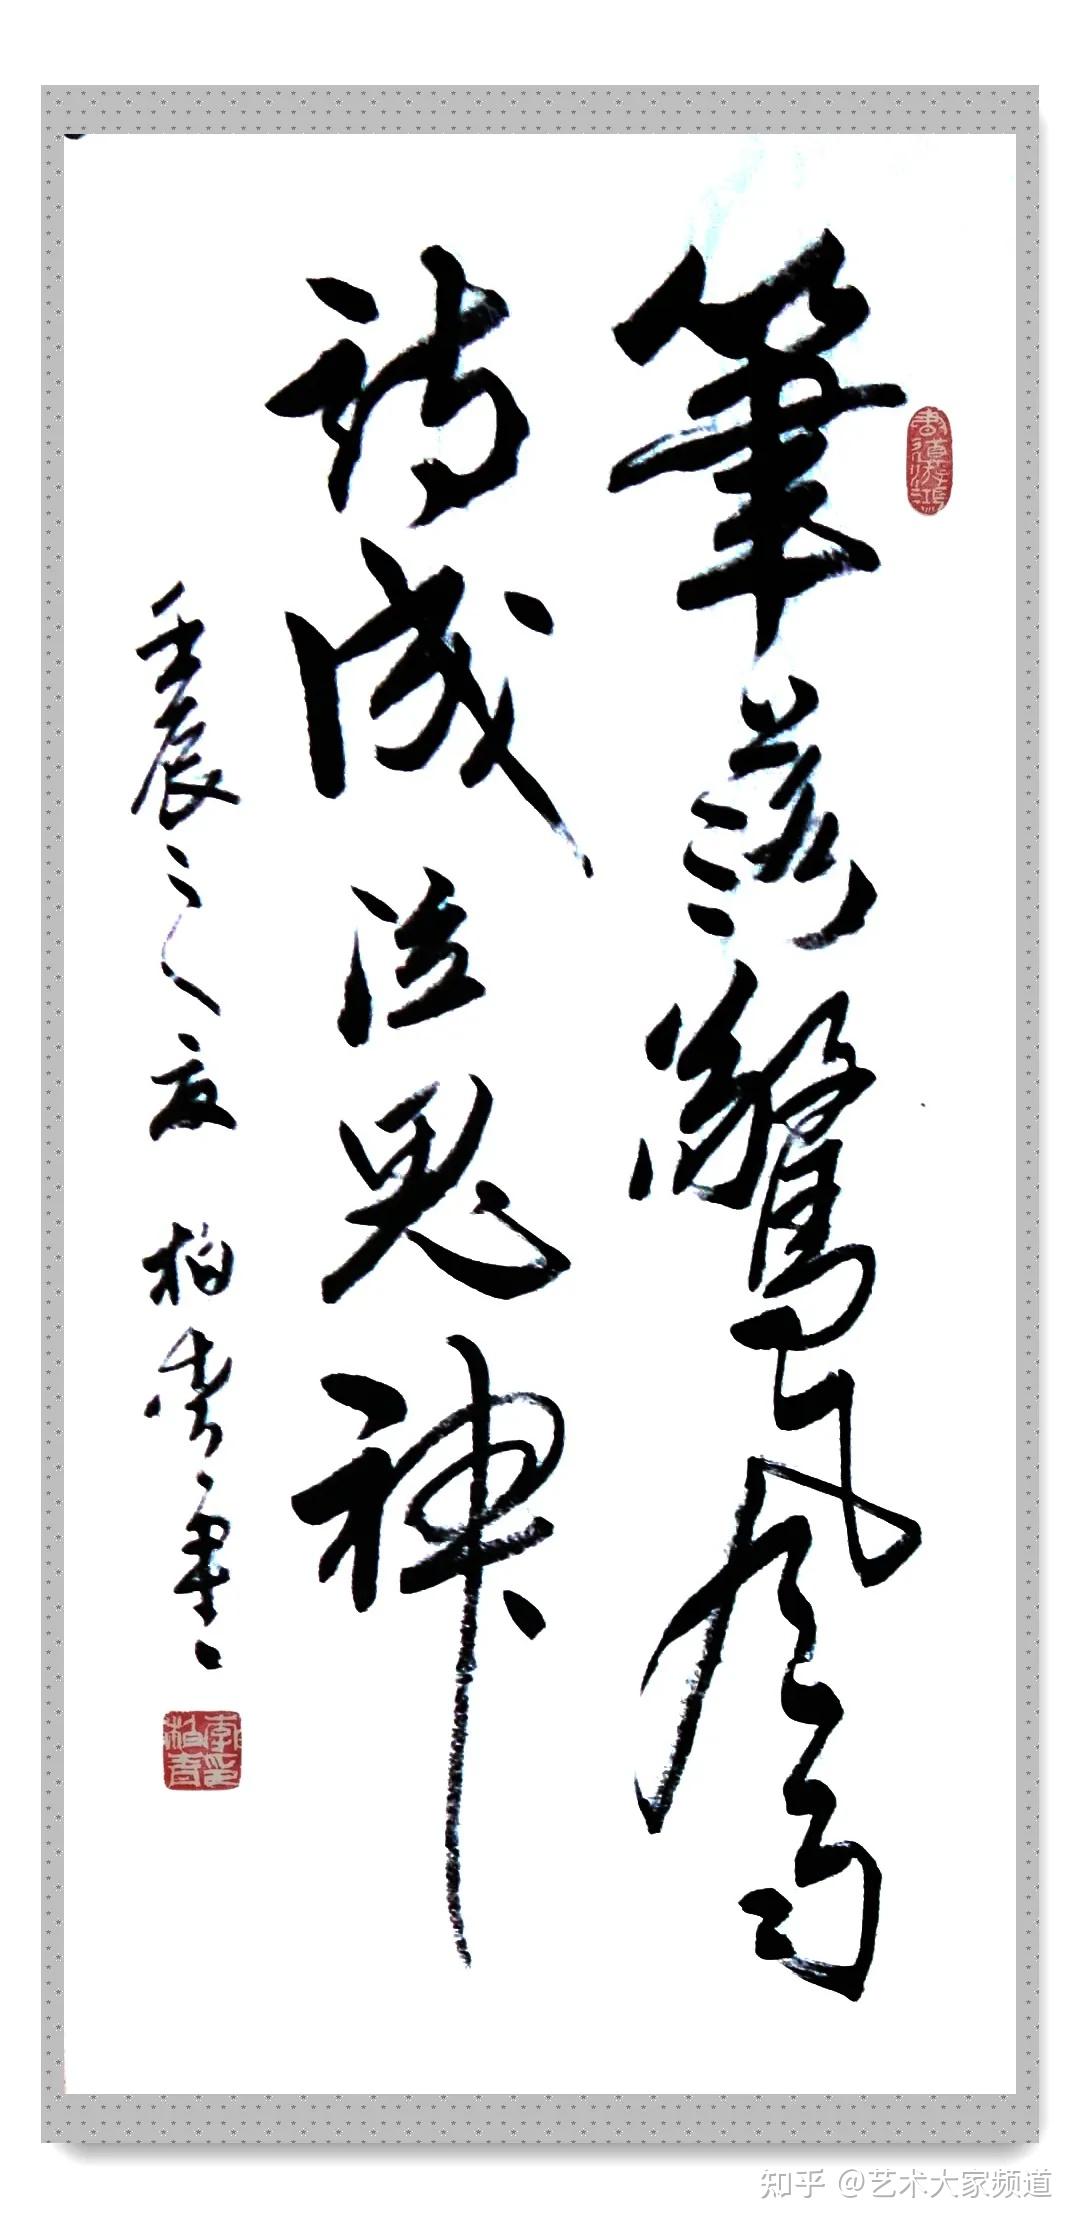 筆落驚風雨
詩成泣鬼神
壬辰之夏 柏春書
知乎 @艺术大家频道